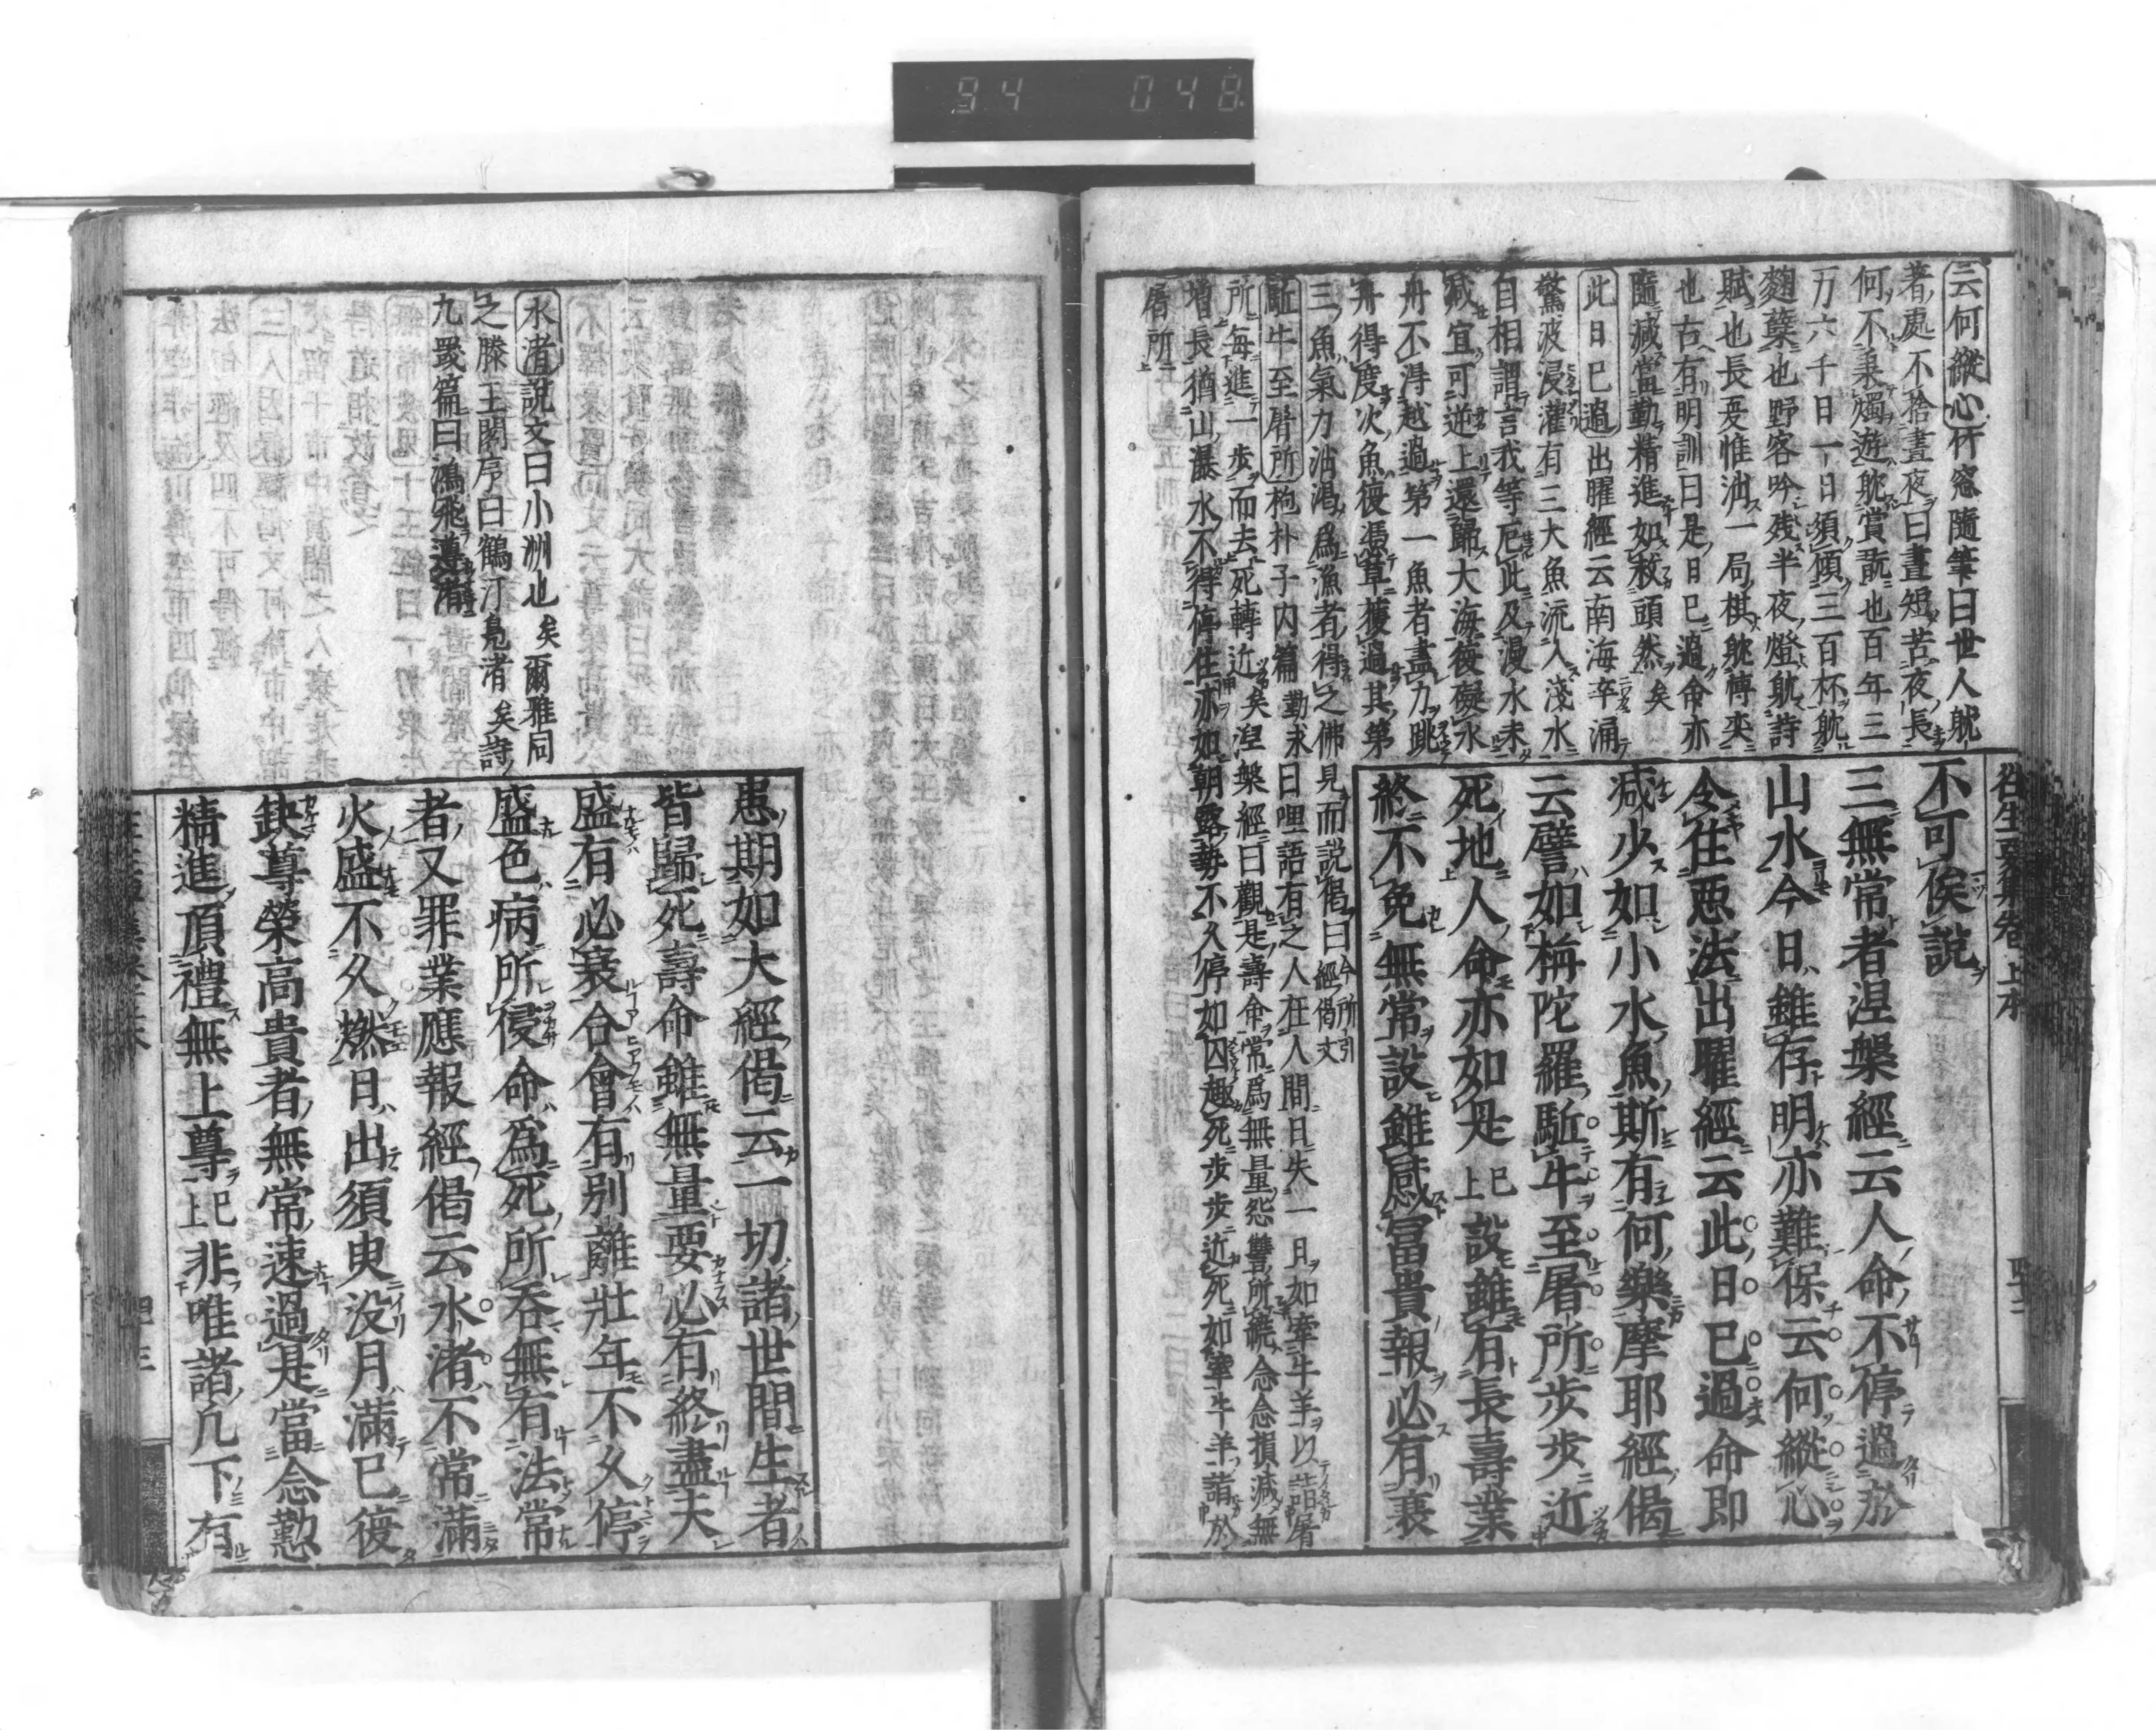 94 048
往生要集卷上本
四十二
不可俟説
三無常者涅槃經云人命不停過於
山水今日雖存明亦難保云何縱心
令住惡法出曜經云此日已過命即
減少如小水魚斯有何樂摩耶經偈
云譬如栴陀羅駈牛至屠所步步近
死地人命亦如是已上設雖有長壽業
終不免無常設雖感富貴報必有衰
云何縱心竹窓隨筆曰世人躭
著處不捨晝夜曰晝短苦夜長
何不秉燭遊躭賞翫也百年三
万六千日一日須傾三百杯躭
麹蘖也野客吟殘半夜燈躭詩
賦也長憂惟消一局棋躭愽奕
也古有明訓曰是日已過命亦
隨減當勤精進如救頭然矣
此日已過出曜經云南海卒涌
驚波浸灌有三大魚流入淺水
自相謂言我等厄此及漫水未
減宜可逆上還歸大海復礙水
舟不得越過第一魚者盡力跳
舟得度次魚復憑草獲過其第
三魚氣力消竭爲漁者得之佛見而説偈曰今所引經偈文
駈牛至屠所抱朴子内篇勤求曰哩語有之人在人間日失一日如牽牛羊以詣屠
所每進一步而去死轉近矣涅槃經曰觀是壽命常爲無量怨讐所繞念念損減無
増長猶山瀑水不得停住亦如朝露勢不久停如囚趣死步步近死如牽牛羊詣於
屠所
患期如大經偈云一切諸世間生者
皆歸死壽命雖無量要必有終盡夫
盛有必衰合會有別離壯年不久停
盛色病所侵命爲死所吞無有法常
者又罪業應報經偈云水渚不常滿
火盛不久燃日出須臾没月滿已復
缺尊榮高貴者無常速過是當念懃
精進頂禮無上尊已上非唯諸凡下有
水渚説文曰小洲也矣爾雅同
之滕王閣序曰鶴汀鳬渚矣詩
九罭篇曰鴻飛遵渚
四十三